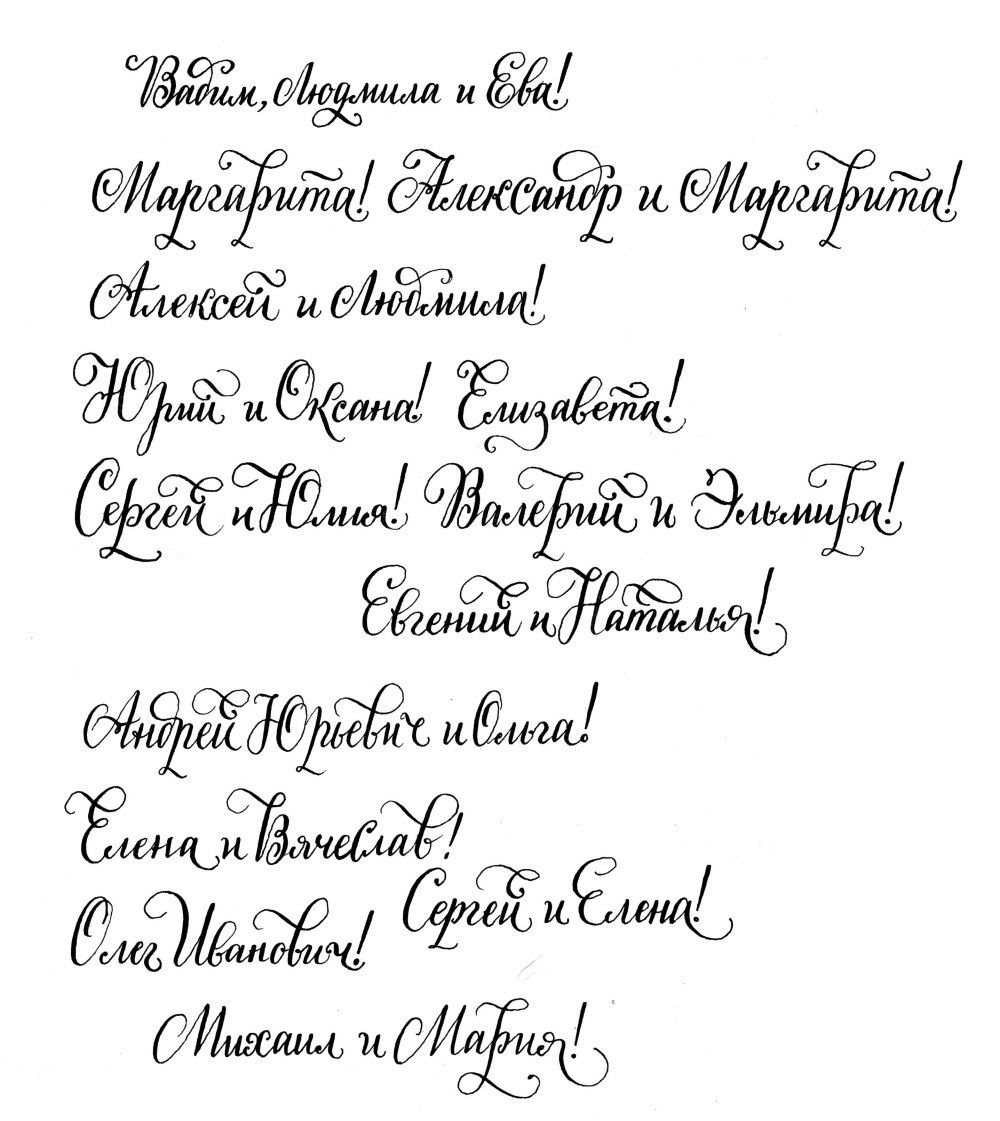 Вадим, Людмила и Ева!
Маргарита! Александр и Маргарита!
Алексей и Людмила!
Юрий и Оксана! Елизавета!
Сергей и Юлия! Валерий и Эльмира!
Евгений и Наталья!
Андрей Юрьевич и Ольга!
Елена и Вячеслав!
Сергей и Елена!
Олег Иванович!
Михаил и Мария!